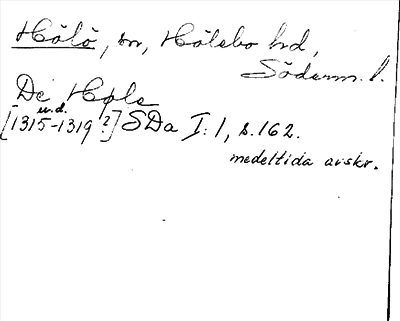 Hölö, sn, Hölebo hd,
Söderm. l.
De Høle
u.d.
[1315-1319 ?] SDa I: 1, s. 162.
medeltida avskr.